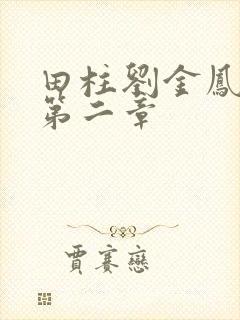 田柱劉金鳳
第二章
賈賽戀